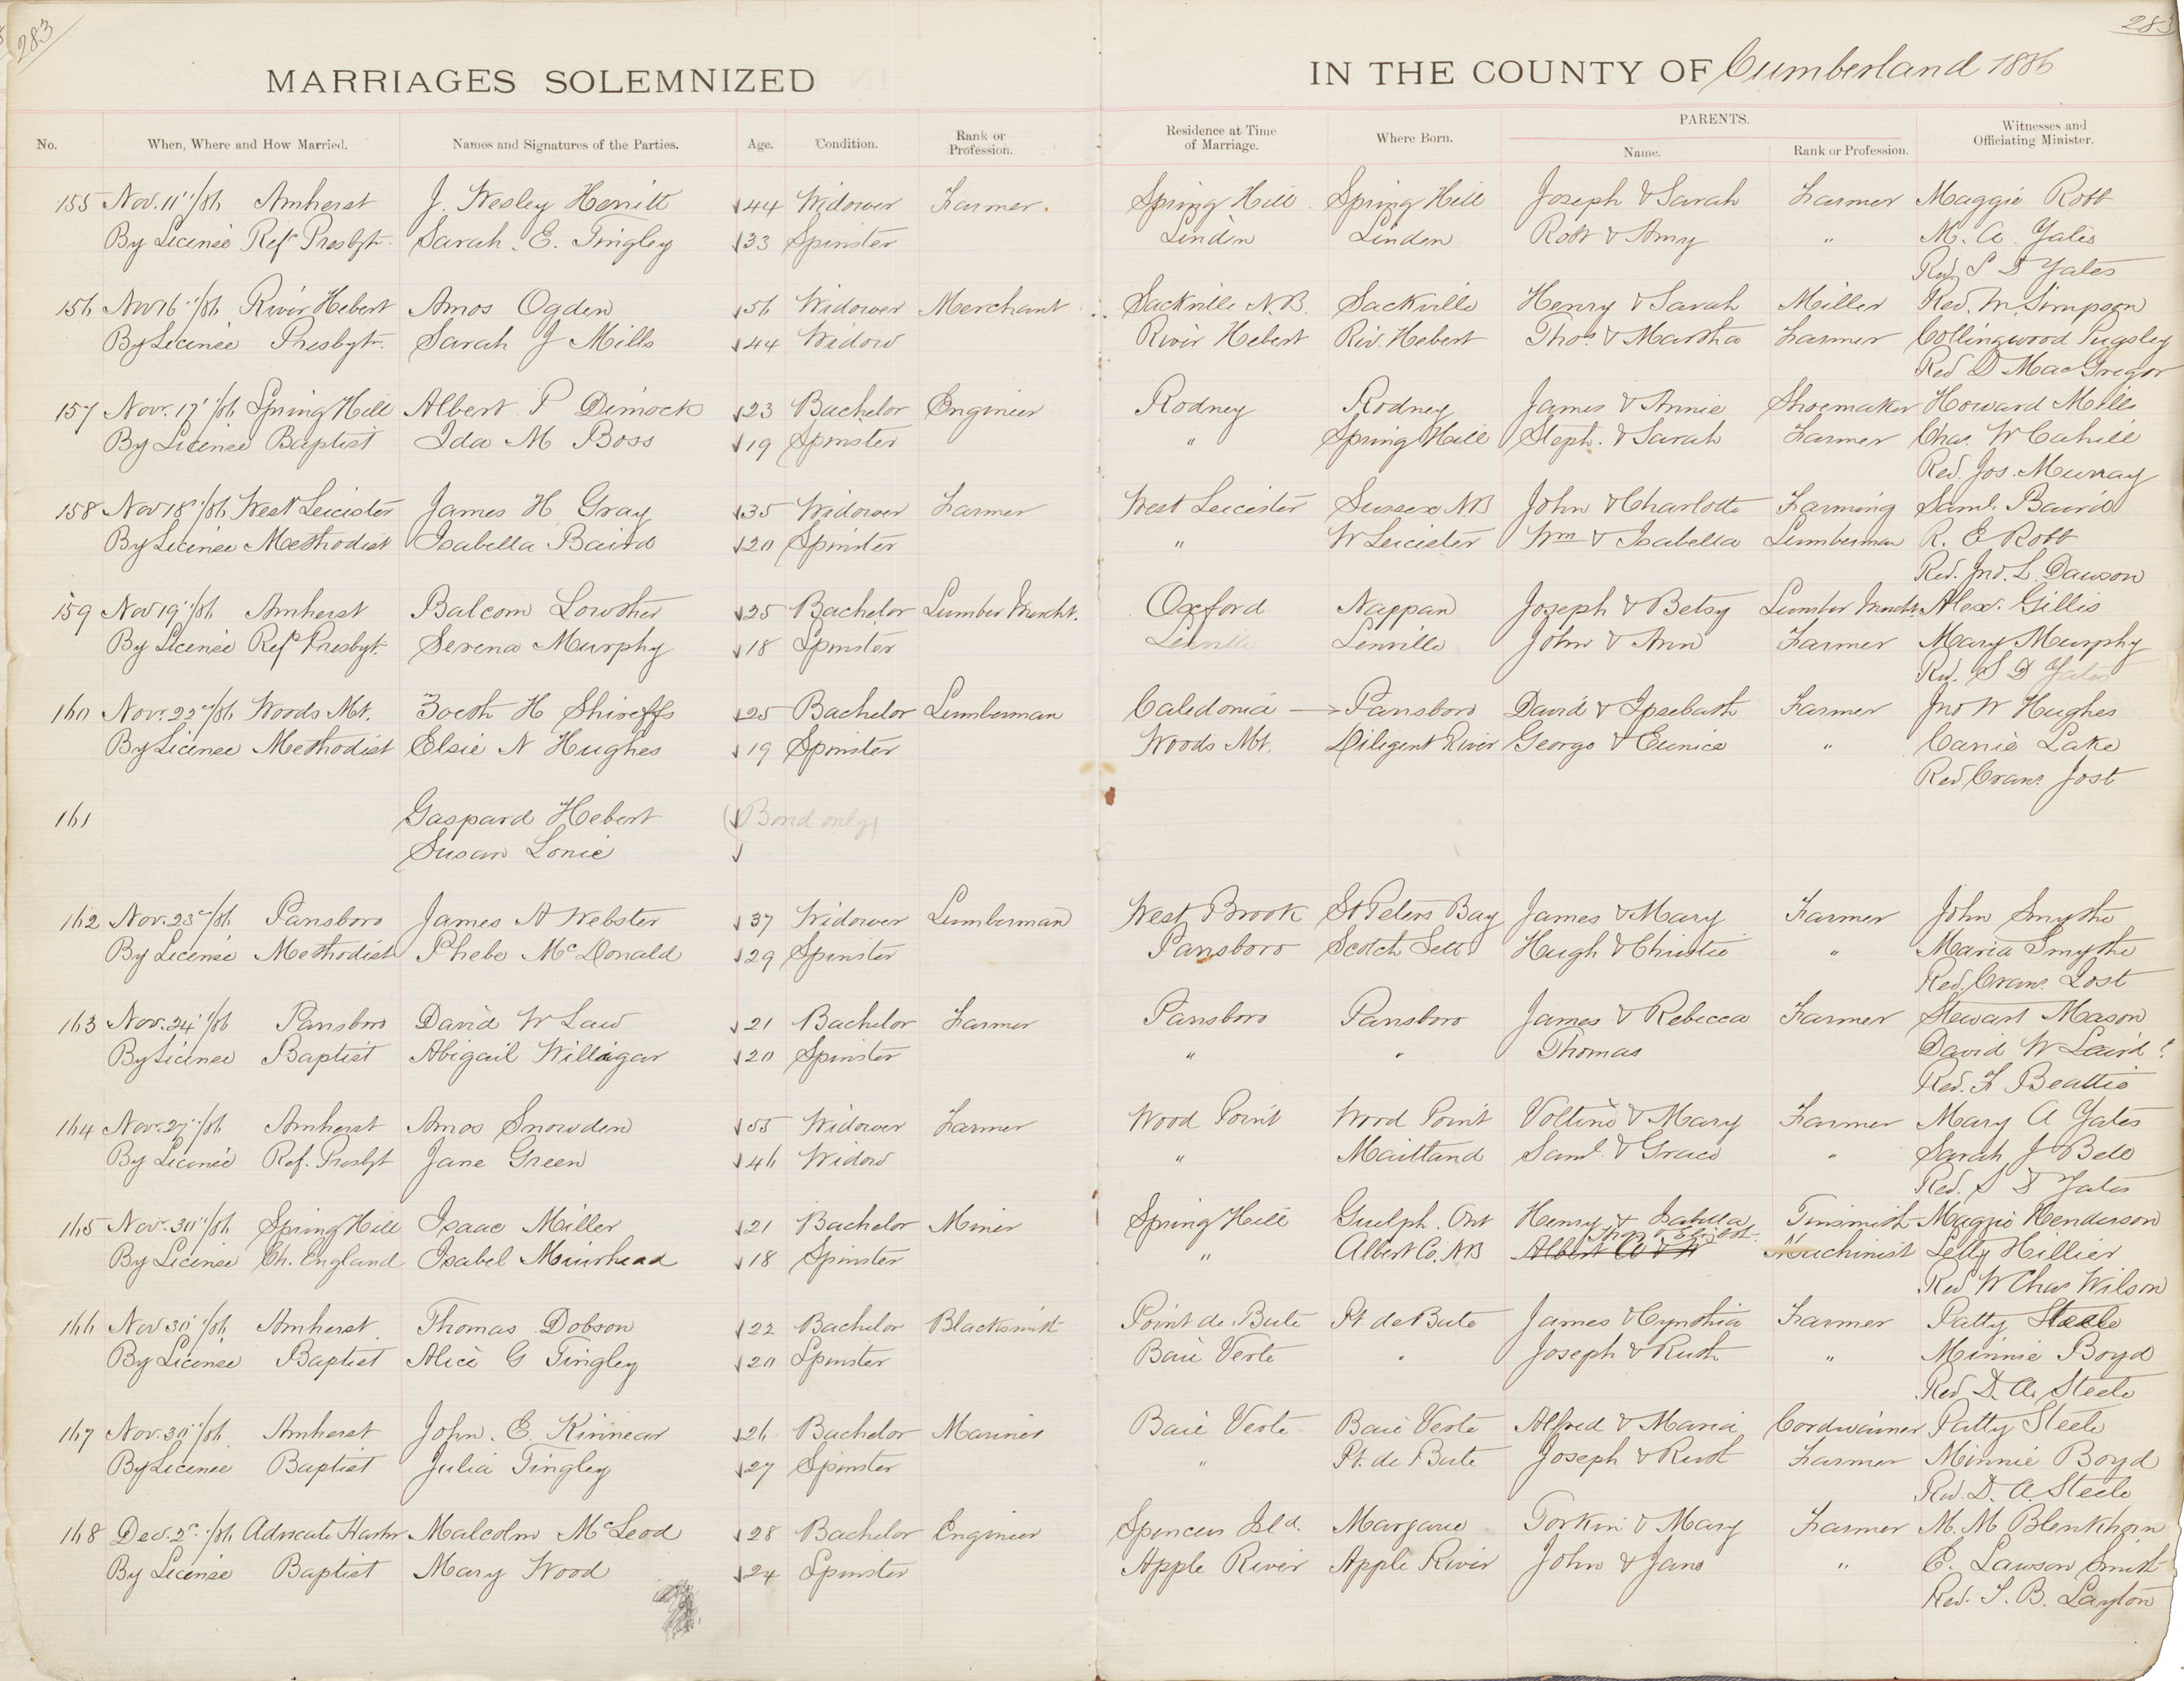 283
283
MARRIAGES SOLEMNIZED IN THE COUNTY OF Cumberland 1886
No. When, Where and How Married. Names and Signatures of the Parties. Age. Condition. Rank or Profession. Residence at Time of Marriage. Where Born. PARENTS. Name. Rank or Profession. Witnesses and Officiating Minister.
155 Nov. 11"/86 Amherst J. Wesley Herritt 44 Widower Farmer. Spring Hill Spring Hill Joseph & Sarah Farmer Maggie Robb
By License Refd Presbyt. Sarah. E. Tingley 33 Spinster Linden Linden Robt & Amy " M. A. Yates
Rev S D Yates
156 Nov 16"/86 River Hebert Amos Ogden 56 Widower Merchant Sackville N.B. Sackville Henry & Sarah Miller Red. M. Simpson
By License Presbytr. Sarah J Mills 44 Widow River Hebert Riv. Hebert Thos & Martha Farmer Collingwood Pugsley
Red D MacGregor
157 Nov. 17"/86 Spring Hill Albert P Dimock 23 Bachelor Engineer Rodney Rodney James & Annie Shoemaker Howard Mills
By License Baptist Ida M Boss 19 Spinster " Spring Hill Steph. & Sarah Farmer Chas. W Cahill
Red. Jos. Murray
158 Nov 18"/86 West Leicister James H Gray 35 Widower Farmer West Leicester Sussex NB John & Charlotte Farming Saml. Baird
By License Methodist Isabella Baird 20 Spinster " W Leicister Wm & Isabella Lumberman R. E Robb
Red. Jno. L. Dawson
159 Nov 19"/86 Amherst Balcom Lowther 25 Bachelor Lumber Mercht. Oxford Nappan Joseph & Betsy Lumber Mercht. Alex. Gillis
By License Refd Presbyt. Serena Murphy 18 Spinster Linville Linville John & Ann Farmer Mary Murphy
Rev. S D Yates
160 Nov. 22"/86 Woods Mt. Zoeth H Shireffs 25 Bachelor Lumberman Caledonia → Parrsboro David & Ipsebath Farmer Jno W Hughes
By License Methodist Elsie N Hughes 19 Spinster Woods Mt. Diligent River George & Eunice " Carrie Lake
Red Crans. Jost
161 Gaspard Hebert (Bond only)
Susan Lonie
162 Nov. 23"/86 Parrsboro James A Webster 37 Widower Lumberman West Brook St Peters Bay James & Mary Farmer John Smythe
By License Methodist Phebe McDonald 29 Spinster Parrsboro Scotch Sett Hugh & Christie " Maria Smythe
Red. Crans. Jost
163 Nov. 24"/86 Parrsboro David W Law 21 Bachelor Farmer Parrsboro Parrsboro James & Rebecca Farmer Stewart Mason
By License Baptist Abigail Willigar 20 Spinster " " Thomas David W Laird ?
Red. F Beattie
164 Nov. 27"/86 Amherst Amos Snowden 55 Widower Farmer Wood Point Wood Point & Mary Farmer Mary A Yates
By License Ref. Presbyt Jane Green 46 Widow " Maitland Saml & Grace " Sarah J Bell
Red. S D Yates
165 Nov. 30"/86 Spring Hill Isaac Miller 21 Bachelor Miner Spring Hill Guelph. Ont Henry & Isabella Tinsmith Maggie Henderson
By License Ch. England Isabel Muirhead 18 Spinster " Albert Co. NB Machinist Letty Hillier
Red W Chas Wilson
166 Nov 30"/86 Amherst Thomas Dobson 22 Bachelor Blacksmith Point de Bute Pt. de Bute James & Cynthia Farmer Patty Steele
By License Baptist Alice G Tingley 20 Spinster Baie Verte " Joseph & Ruth " Minnie Boyd
Red D. A. Steele
167 Nov. 30"/86 Amherst John. E. Kinnear 26 Bachelor Mariner Baie Verte Baie Verte Alfred & Maria Cordwainer Patty Steele
By License Baptist Julia Tingley 27 Spinster " Pt. de Bute Joseph & Ruth Farmer Minnie Boyd
Rev. D. A. Steele
168 Dec. 2"/86 Advocate Harbr Malcolm McLeod 28 Bachelor Engineer Spencers Isld. Margaree Torkin & Mary Farmer M. M Blenkhorn
By License Baptist Mary Wood 24 Spinster Apple River Apple River John & Jane " C. Lawson Smith
Rev. S. B. Layton